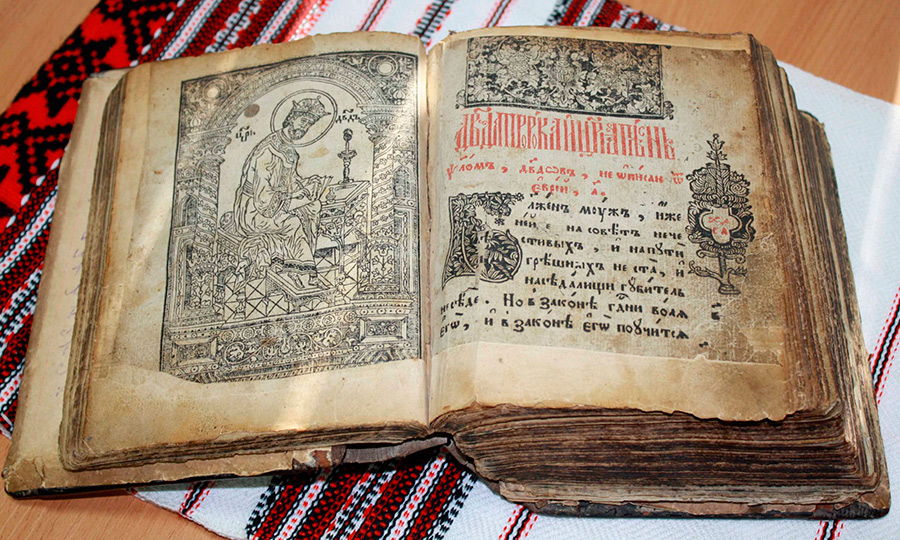 Дв҃да пррка и цр҃ѧ пѣснь
ѱаломъ, дв҃довъ, не ѡписанъ ѿ
еврей, а҃.
Блженъ моужъ, иже
не иде на совѣтъ нече
стивыхъ, и на пути
грѣшныхъ не ста, и
на сѣдалищи гоубитель
не сѣде. Но в законѣ гдни волѧ
егѡ, и в законѣ егѡ пооучитсѧ